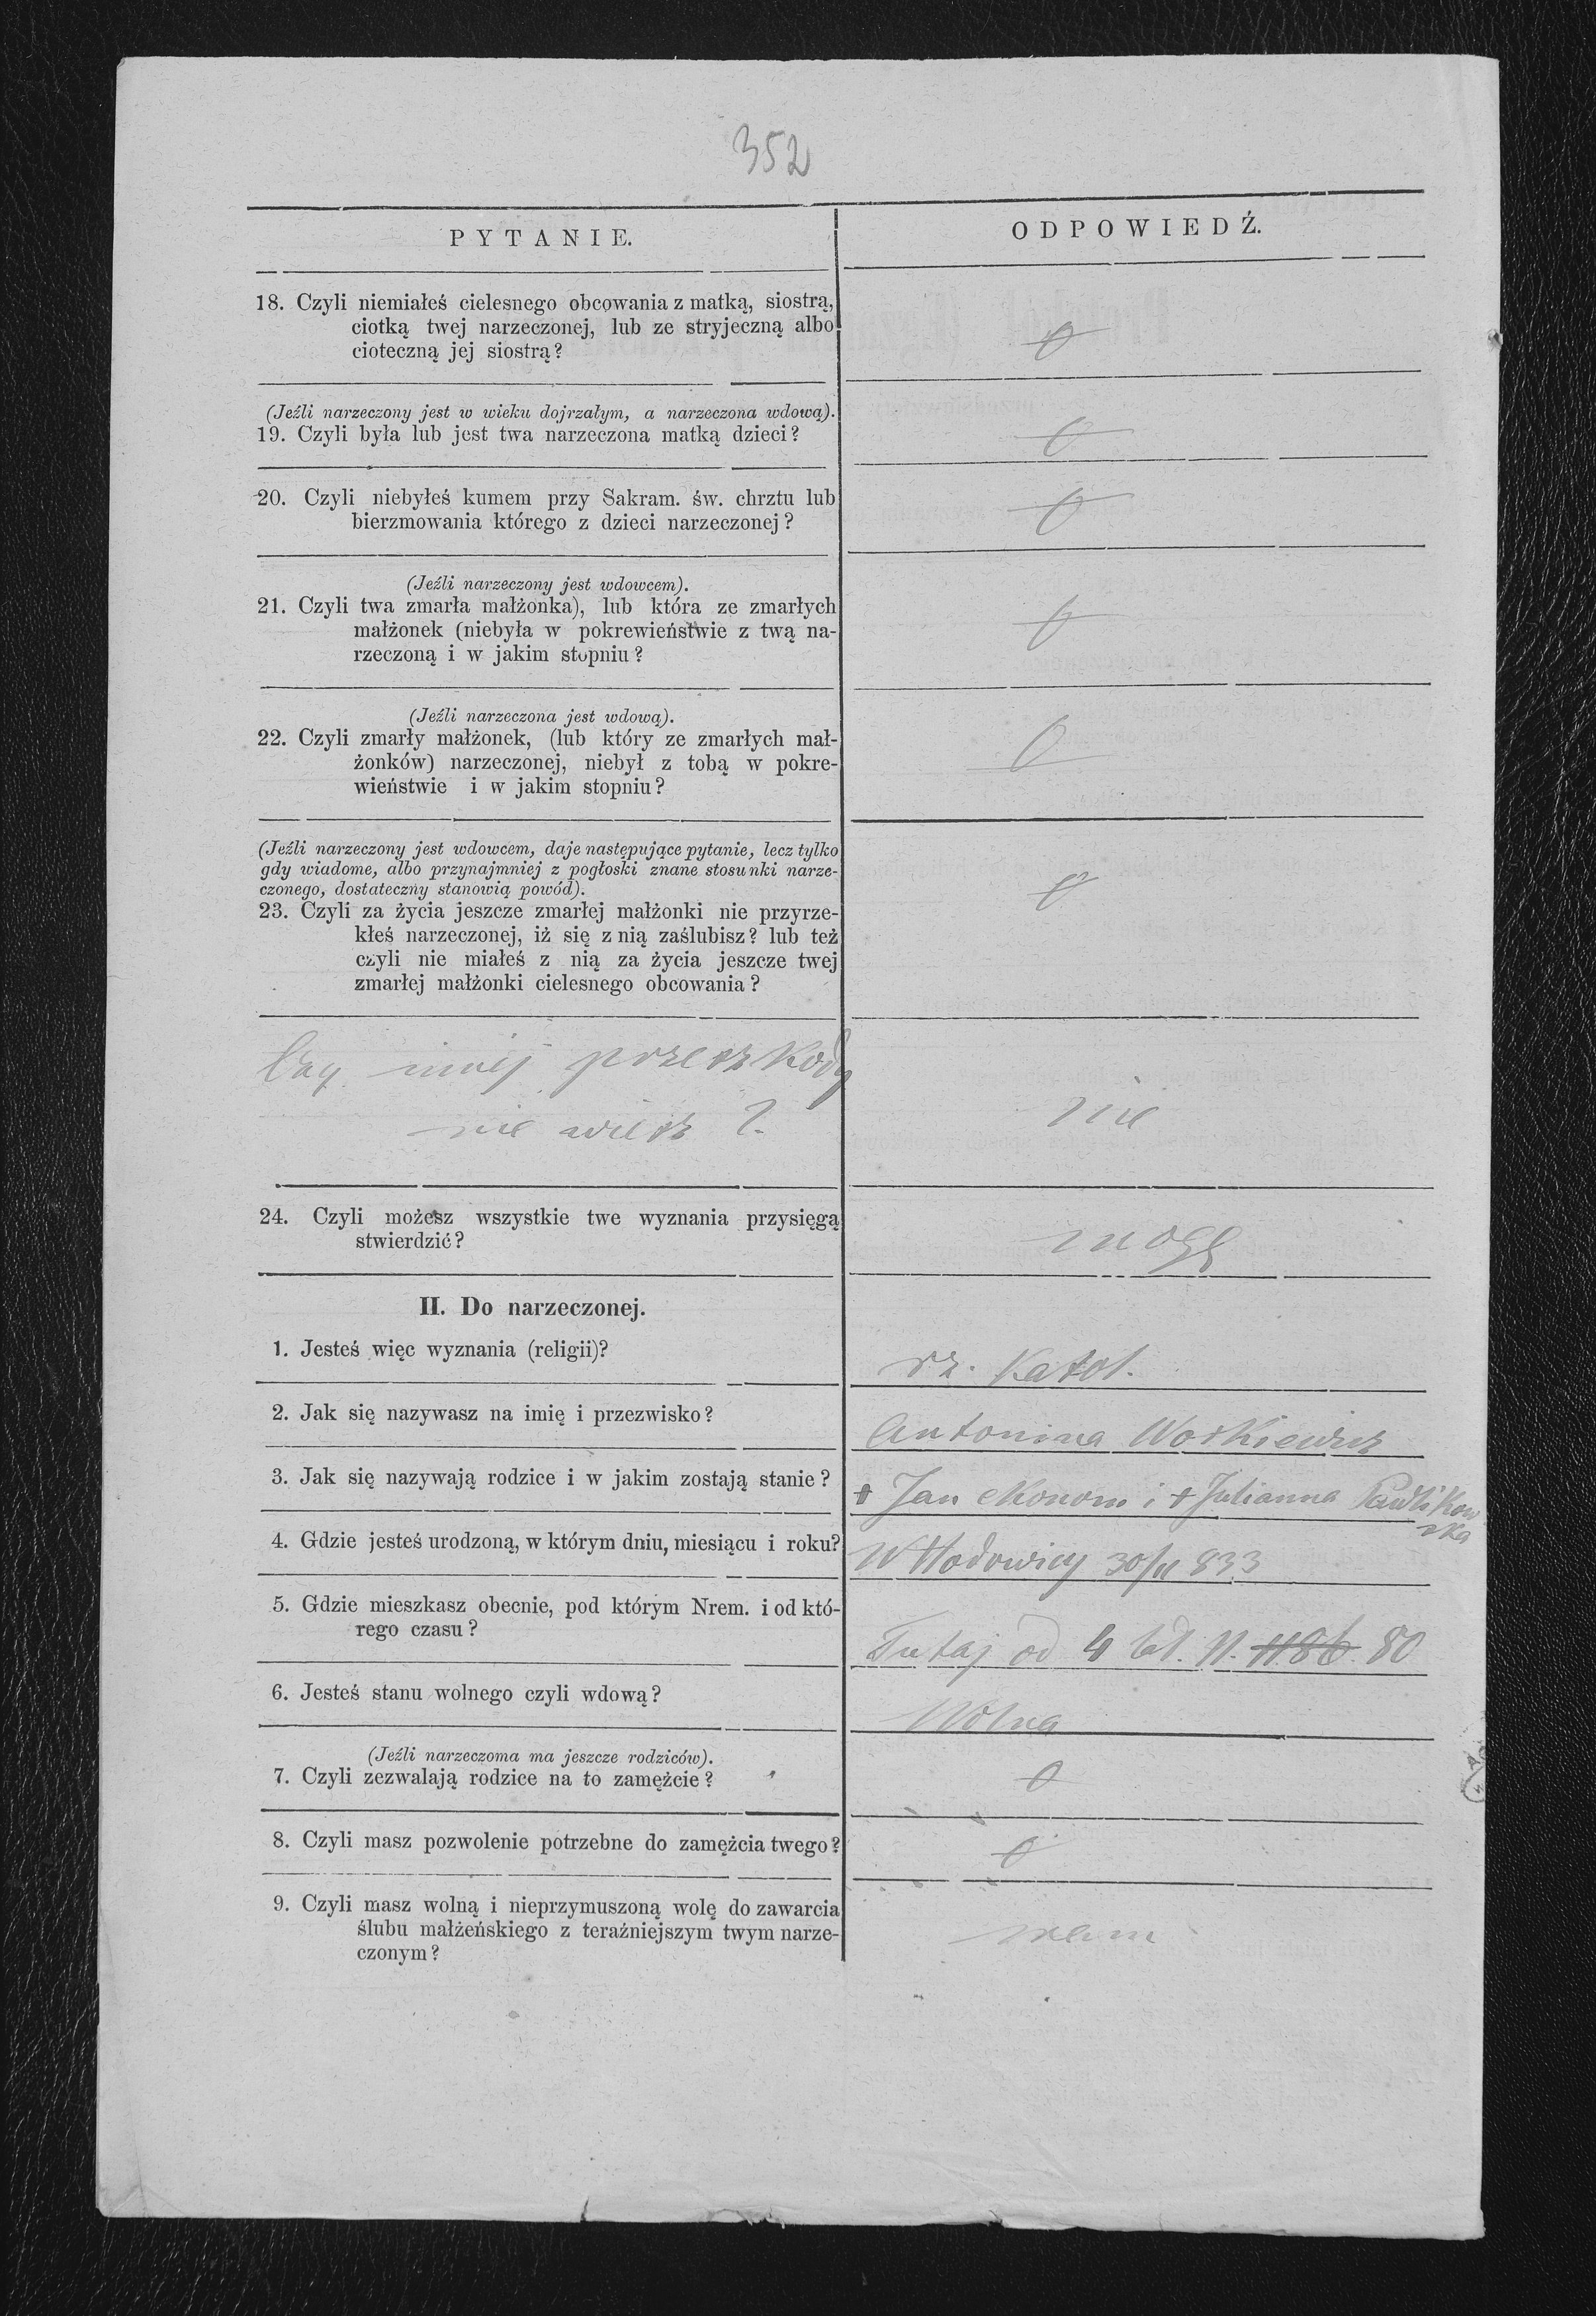 352
PYTANIE.
ODPOWIEDŹ.
18. Czyli niemiałeś cielesnego obcowania z matką, siostrą,
ciotką twej narzeczonej, lub ze stryjeczną albo
cioteczną jej siostrą?
0
(Jeźli narzeczony jest w wieku dojrzałym, a narzeczona wdową).
19. Czyli była lub jest twa narzeczona matką dzieci?
0
20. Czyli niebyłeś kumem przy Sakram. św. chrztu lub
bierzmowania którego z dzieci narzeczonej?
0
(Jeźli narzeczony jest wdowcem).
21. Czyli twa zmarła małżonka), lub która ze zmarłych
małżonek (niebyła w pokrewieństwie z twą na-
rzeczoną i w jakim stopniu?
0
(Jeźli narzeczona jest wdową).
22. Czyli zmarły małżonek, (lub który ze zmarłych mał-
żonków) narzeczonej, niebył z tobą w pokre-
wieństwie i w jakim stopniu?
0
(Jeźli narzeczony jest wdowcem, daje następujące pytanie, lecz tylko
gdy wiadome, albo przynajmniej z pogłoski znane stosunki narze-
czonego, dostateczny stanowią powód).
23. Czyli za życia jeszcze zmarłej małżonki nie przyrze-
kłeś narzeczonej, iż się z nią zaślubisz? lub też
czyli nie miałeś z nią za życia jeszcze twej
zmarłej małżonki cielesnego obcowania?
0
Czy innej przeszkody
nie wiesz?
nie
24. Czyli możesz wszystkie twe wyznania przysięgą
stwierdzić?
mogę
II. Do narzeczonej.
1. Jesteś więc wyznania (religii)?
rz. Katol.
2. Jak się nazywasz na imię i przezwisko?
Antonina
3. Jak się nazywają rodzice i w jakim zostają stanie?
+ Jan ekonom i + Julianna Pawlikow
ska
4. Gdzie jesteś urodzoną, w którym dniu, miesiącu i roku?
W Hodowicy 30/11 833
5. Gdzie mieszkasz obecnie, pod którym Nrem. i od któ-
rego czasu?
Tutaj od 4 lat. N. 1186 80
6. Jesteś stanu wolnego czyli wdową?
Wolna
(Jeźli narzeczoma ma jeszcze rodziców).
7. Czyli zezwalają rodzice na to zamężcie?
0
8. Czyli masz pozwolenie potrzebne do zamężcia twego?
0
9. Czyli masz wolną i nieprzymuszoną wolę do zawarcia
ślubu małżeńskiego z teraźniejszym twym narze-
czonym?
mam